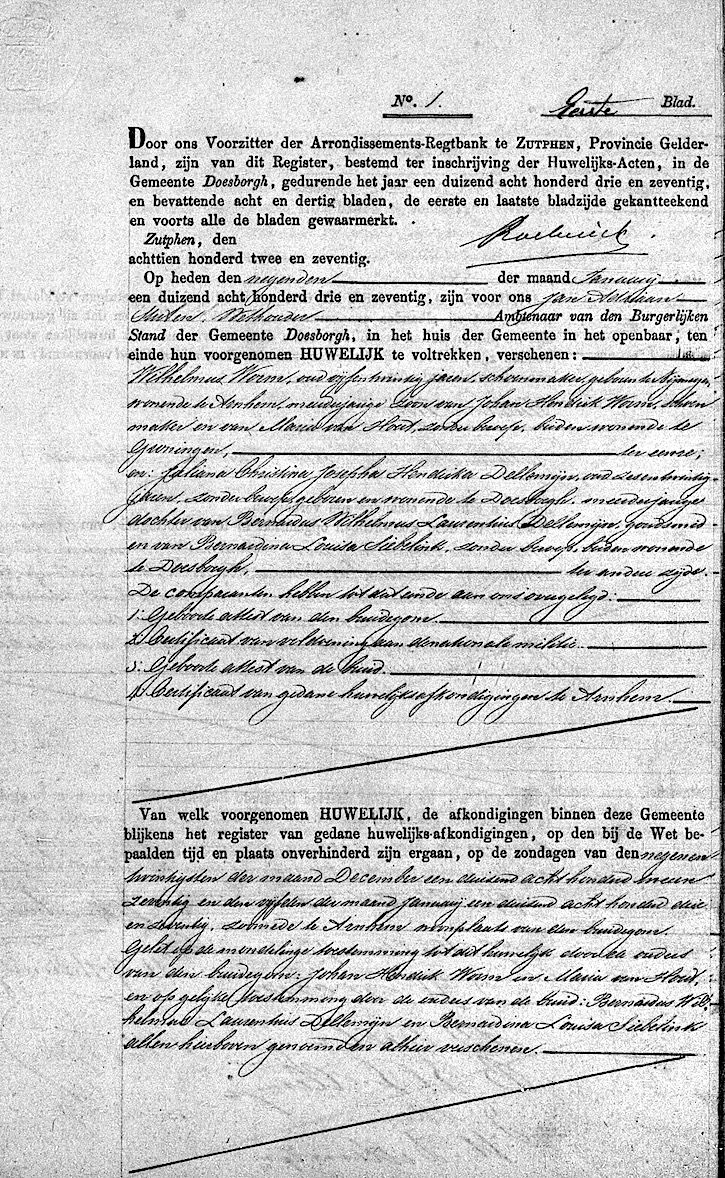 No. 1. Eerste Blad.
Door ons Voorzitter der Arrondissements-Regtbank te ZUTPHEN, Provincie Gelder-
land, zijn van dit Register, bestemd ter inschrijving der Huwelijks-Acten, in de
Gemeente Doesborgh, gedurende het jaar een duizend acht honderd drie en zeventig,
en bevattende acht en dertig bladen, de eerste en laatste bladzijde gekantteekend
en voorts alle de bladen gewaarmerkt.
Zutphen, den
achttien honderd twee en zeventig.
Op heden den negenden der maand Januarij
een duizend acht honderd drie en zeventig, zijn voor ons Jan Adriaan
Wethouder Ambtenaar van den Burgerlijken
Stand der Gemeente Doesborgh, in het huis der Gemeente in het openbaar, ten
einde hun voorgenomen HUWELIJK te voltrekken, verschenen:
Wilhelmus Worm, oud vijfentwintig jaren, schoenmaker, geboren te Nijmegen,
wonende te Arnhem, meerderjarige zoon van Johan Hendrik Worm, schoen
maker en van Maria van Hout, zonder beroep, beiden wonende te
Groningen, ter eenre;
en: Juliana Christina Josepha Hendrika Dellemijn, oud zesentwintig
jaren, zonder beroep, geboren en wonende te Doesborgh, meerderjarige
dochter van Bernardus Wilhelmus Laurentius Dellemijn, goudsmid
en van Bernardina Louisa Siebelink, zonder beroep, beiden wonende
te Doesborgh, ter andere zijde.
De comparanten hebben tot dat einde aan ons overgelegd:
1: Geboorte attest van den bruidegom.
2: Certificaat van voldoening aan de nationale militie.
3: Geboorte attest van de bruid.
4: Certificaat van gedane huwelijksafkondigingen te Arnhem.
Van welk voorgenomen HUWELIJK, de afkondigingen binnen deze Gemeente
blijkens het register van gedane huwelijks-afkondigingen, op den bij de Wet be-
paalden tijd en plaats onverhinderd zijn ergaan, op de zondagen van den negenen
twintigsten der maand December een duizend acht honderd tweeen
zeventig en den vijfden der maand Januarij een duizend acht honderd drie
en zeventig, zoomede te Arnhem woonplaats van den bruidegom.
Gelet op de mondelinge toestemming tot dit huwelijk door de ouders
van den bruidegom: Johan Hendrik Worm en Maria van Hout,
en op gelijke toestemming door de ouders van de bruid: Bernardus Wil
helmus Laurentius Dellemijn en Bernardina Louisa Siebelink
allen hierboven genoemd en alhier verschenen.